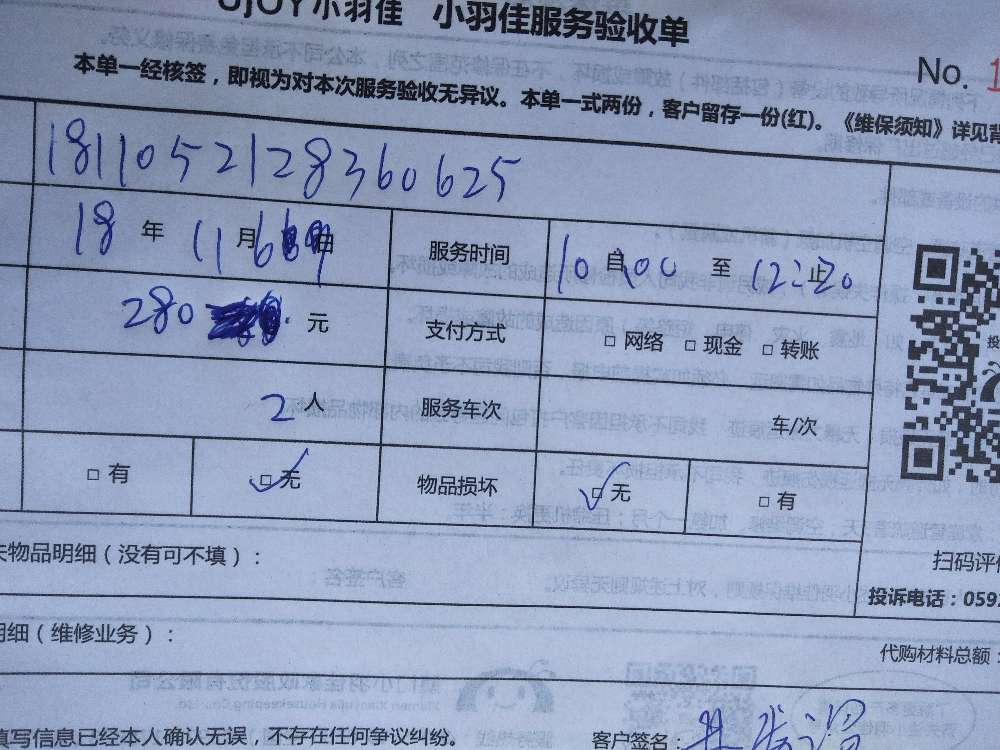 UJOY小羽佳 小羽佳服务验收单
No. 1
本单一经核签，即视为对本次服务验收无异议。本单一式两份，客户留存一份(红)。《维保须知》详见背
1811052128360625
18 年 11 月 6 日 服务时间 10:00 至 12:20 止
280 元 支付方式 □ 网络 □ 现金 □ 转账
2 人 服务车次 车/次
□ 有 □ 无 物品损坏 □ 无 □ 有
物品明细（没有可不填）：
扫码评
投诉电话：059
明细（维修业务）：
代购材料总额：
填写信息已经本人确认无误，不存在任何争议纠纷。 客户签名：